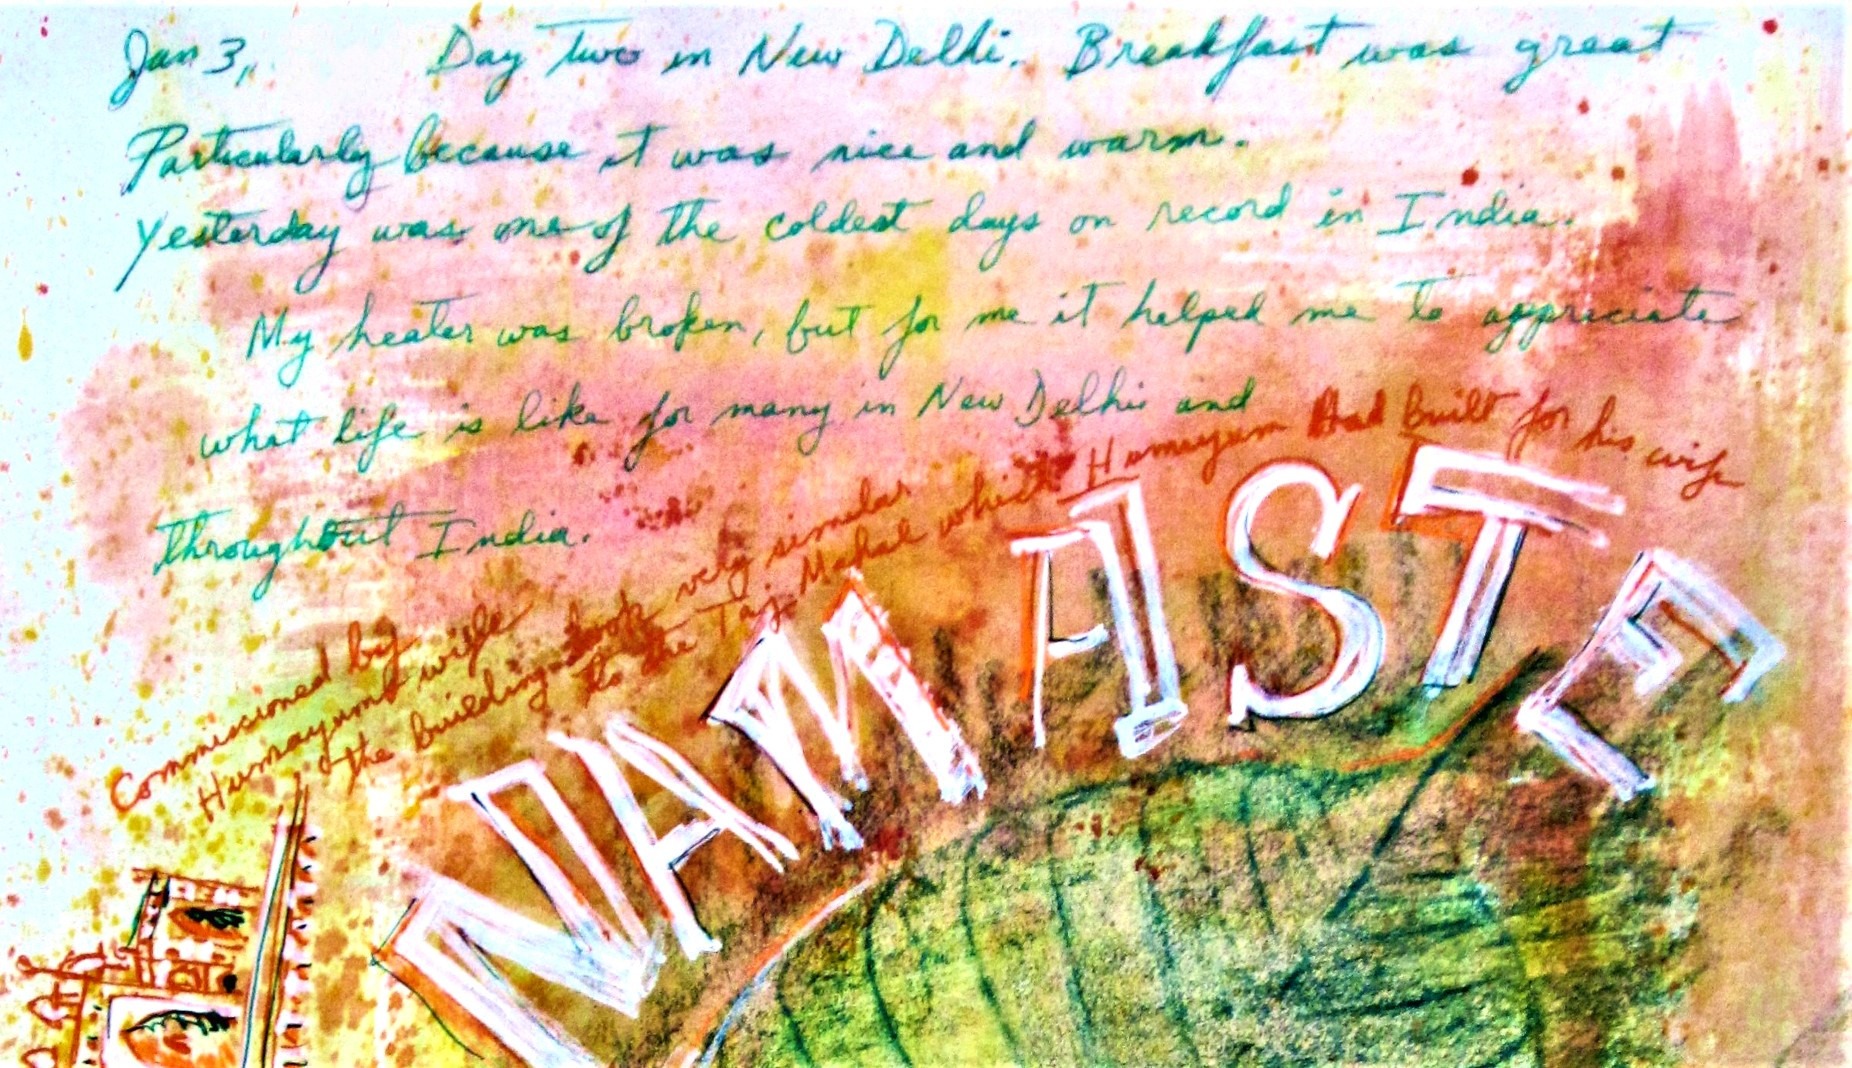 Jan 3, Day Two in New Delhi. Breakfast was great
Particularly because it was nice and warm.
Yesterday was one of the coldest days on record in India.
My heater was broken, but for me it helped me to appreciate
what life is like for many in New Delhi and
throughout India.
Commissioned by
Humayumb wife
the building look very similar
to the Taj Mahal which Humuyum Had built for his wife
NAMASTE